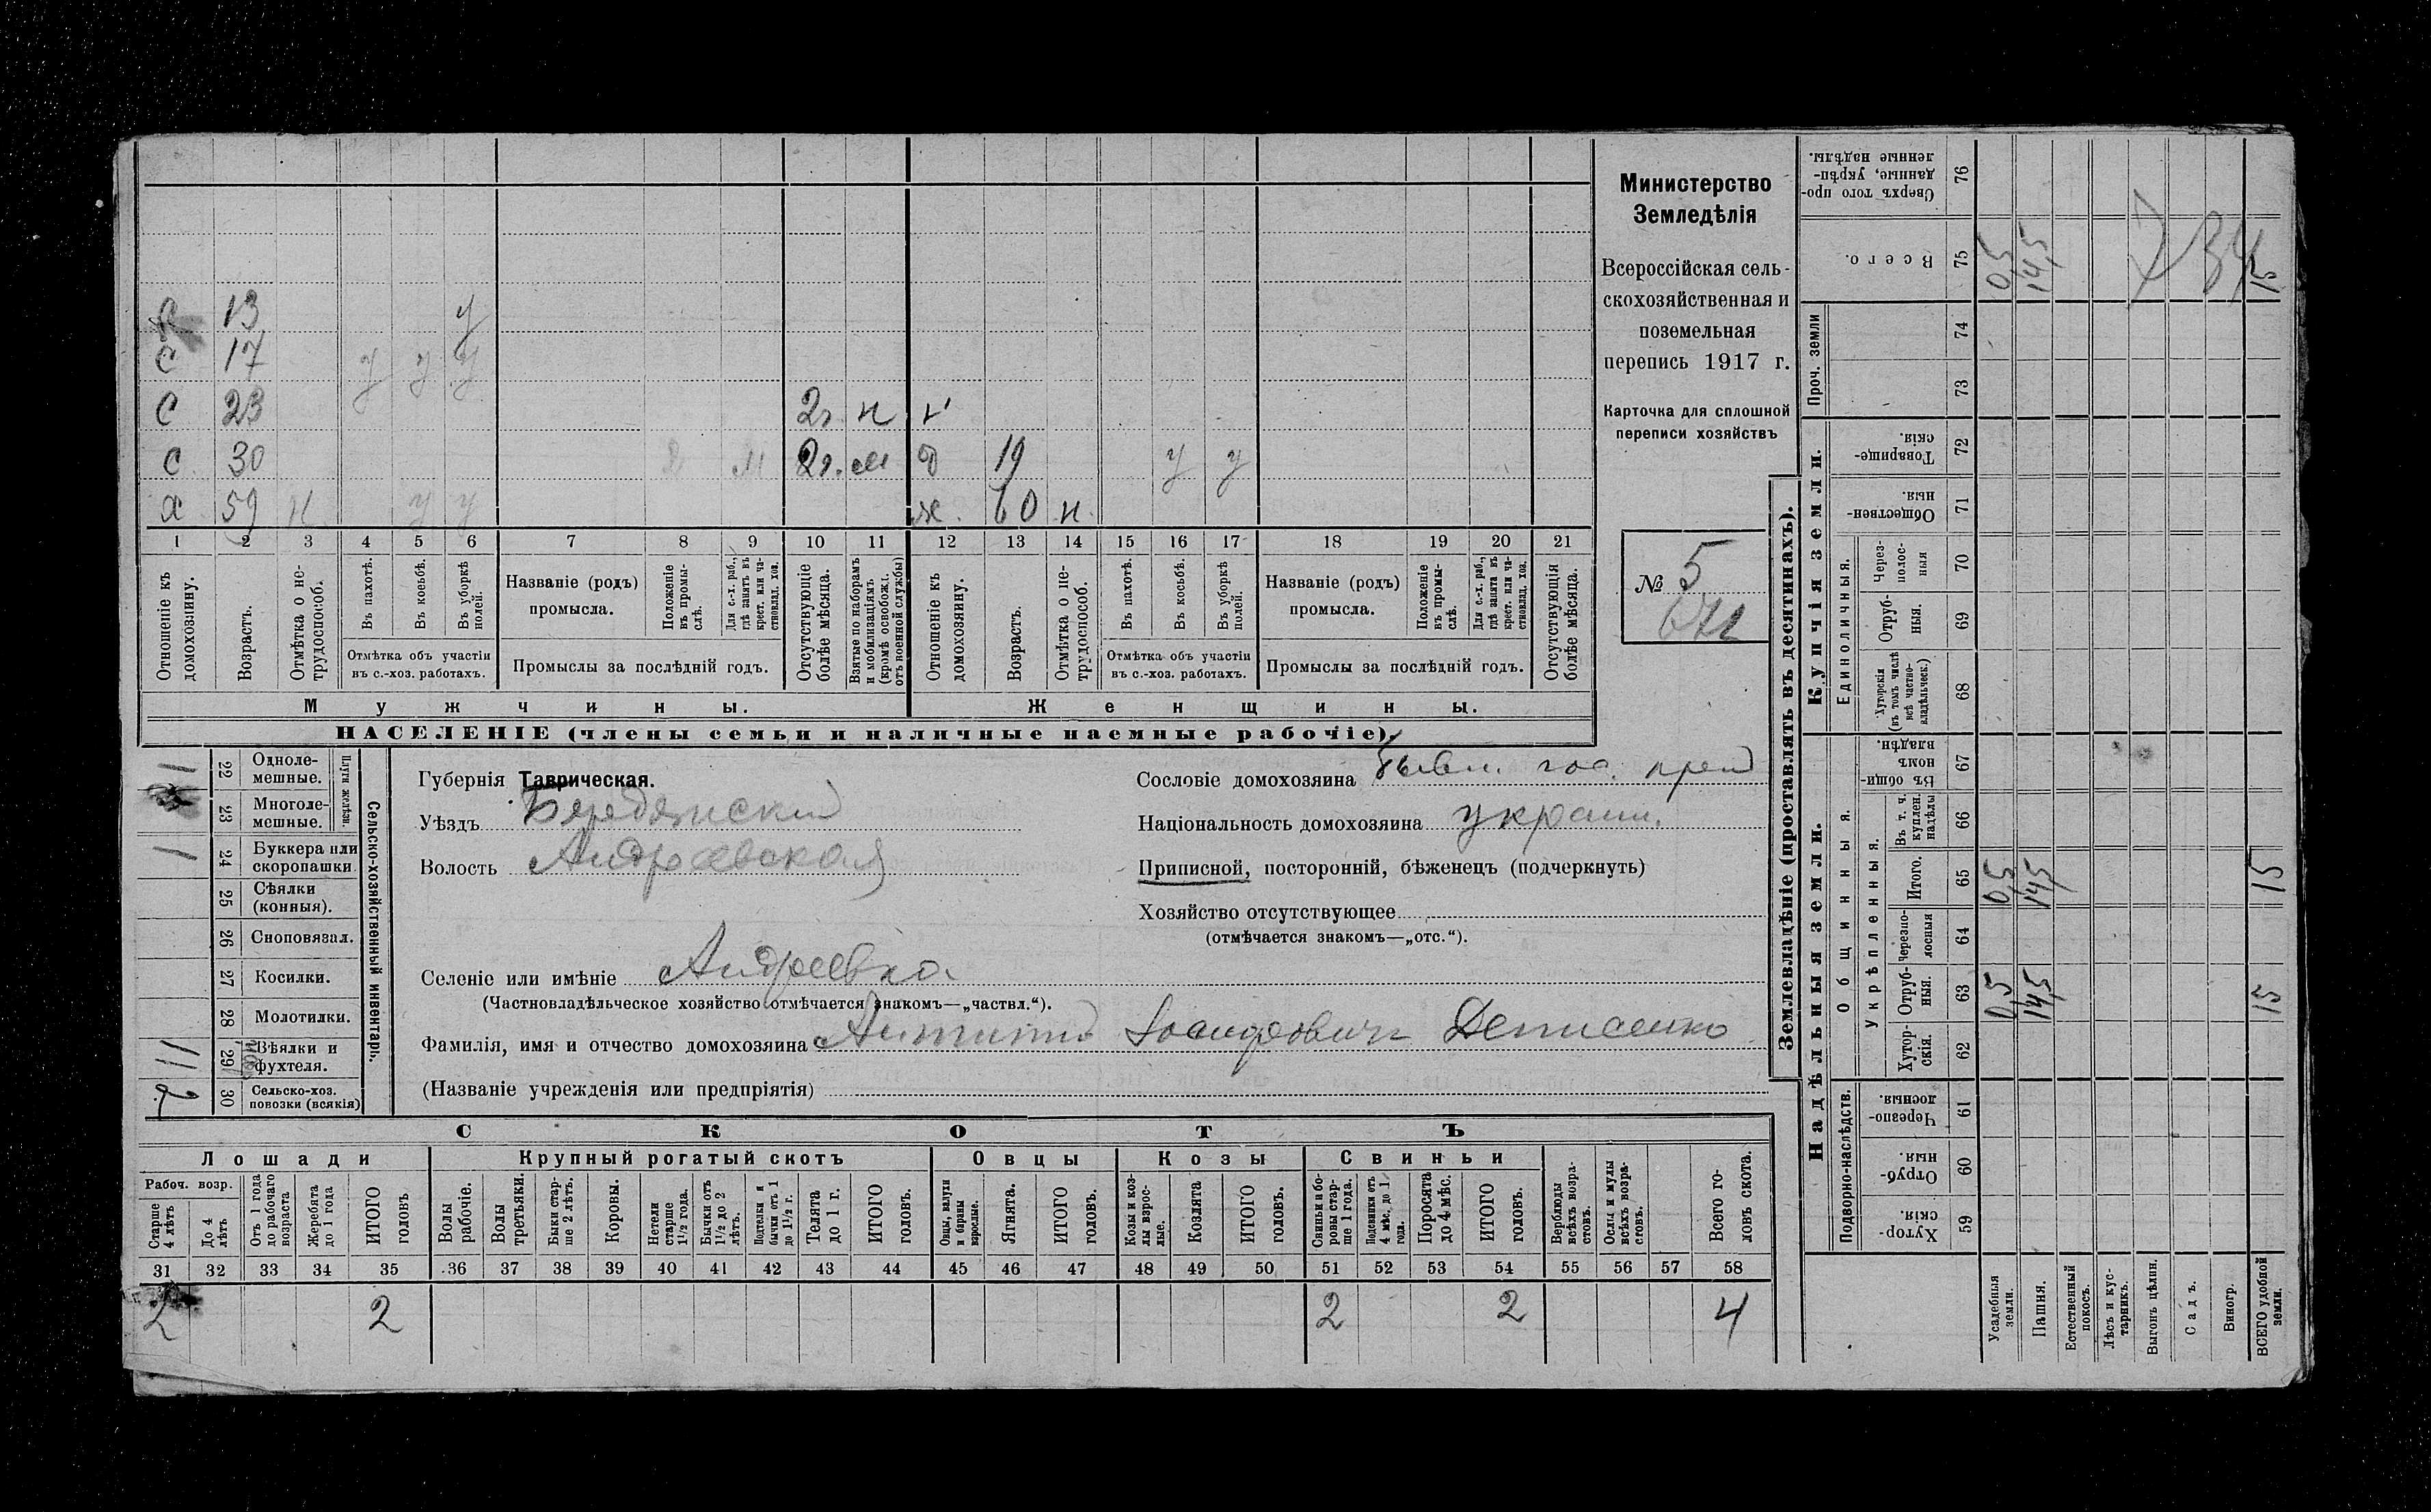 Министерство
Земледѣлія
Всероссійская сель-
скохозяйственная и
поземельная
перепись 1917 г.
Карточка для сплошной
переписи хозяйствъ
№ 5
с 13 у
с 17 у у у
с 23 2г н
с 30 2г. м 19 у у
х 59 н у у ж. 60 н
1 2 3 4 5 6 7 8 9 10 11 12 13 14 15 16 17 18 19 20 21
Отношеніе къ домохозяину.
Возрастъ.
Отмѣтка о не-трудоспособ.
Въ пахотѣ.
Въ косьбѣ.
Въ уборкѣ полей.
Отмѣтка объ участіи
въ с.-хоз. работахъ.
Названіе (родъ)
промысла.
Положеніе въ промы-слѣ.
Для с.-х. раб., гдѣ занятъ въ крест. или ча-стновлад. хоз.
Промыслы за послѣдній годъ.
Отсутствующіе болѣе мѣсяца.
Взятые по наборамъ и мобилизаціямъ (кромѣ освобожд. отъ военной службы)
Отношеніе къ домохозяину.
Возрастъ.
Отмѣтка о не-трудоспособ.
Въ пахотѣ.
Въ косьбѣ.
Въ уборкѣ полей.
Отмѣтка объ участіи
въ с.-хоз. работахъ.
Названіе (родъ)
промысла.
Положеніе въ промы-слѣ.
Для с.-х. раб., гдѣ занята въ крест. или ча-стновлад. хоз.
Промыслы за послѣдній годъ.
Отсутствующія болѣе мѣсяца.
Мужчины.
Женщины.
НАСЕЛЕНІЕ (члены семьи и наличные наемные рабочіе).
Сельско-хозяйственный инвентарь.
Плуги желѣзн.
22 Одноле-мешные. 1
23 Многоле-мешные.
24 Буккера или скоропашки 1
25 Сѣялки (конныя).
26 Сноповязал.
27 Косилки.
28 Молотилки.
29 Вѣялки и фухтеля.
30 Сельско-хоз. повозки (всякія) 2
Губернія Таврическая.
Уѣздъ Бердянский
Волость Андреевская
Селеніе или имѣніе Андреевка
(Частновладѣльческое хозяйство отмѣчается знакомъ—„частвл.“).
Фамилія, имя и отчество домохозяина Денисенко
(Названіе учрежденія или предпріятія)
Сословіе домохозяина бывш. гос. крест
Національность домохозяина украин.
Приписной, посторонній, бѣженецъ (подчеркнуть)
Хозяйство отсутствующее
(отмѣчается знакомъ—„отс.“).
СКОТЪ
Лошади
Крупный рогатый скотъ
Овцы
Козы
Свиньи
Рабоч. возр.
Старше 4 лѣтъ
До 4 лѣтъ
Отъ 1 года до рабочаго возраста
Жеребята до 1 года
ИТОГО головъ
Волы рабочіе.
Волы третьяки.
Быки стар-ше 2 лѣтъ.
Коровы.
Нетели старше 1½ года.
Бычки отъ 1½ до 2 лѣтъ.
Подтелки и бычки отъ 1 до 1½ г.
Телята до 1 г.
ИТОГО головъ.
Овцы, валухи и бараны взрослые.
Ягнята.
ИТОГО головъ.
Козы и коз-лы взрос-лые.
Козлята
ИТОГО головъ.
Свиньи и бо-ровы стар-ше 1 года.
Подсвинки отъ 4 мѣс. до 1 года.
Поросята до 4 мѣс.
ИТОГО головъ.
Верблюды всѣхъ возра-стовъ.
Ослы и мулы всѣхъ возра-стовъ.
Всего го-ловъ скота.
31 32 33 34 35 36 37 38 39 40 41 42 43 44 45 46 47 48 49 50 51 52 53 54 55 56 57 58
2 2 2 2 4
Землевладѣніе (проставлять въ десятинахъ).
Надѣльныя земли.
Купчія земли.
Подворно-наслѣдств.
Общинныя.
Укрѣпленныя.
Единоличныя.
Проч. земли
59 Хутор-скія.
60 Отруб-ныя.
61 Черезпо-лосныя.
62 Хутор-скія.
63 Отруб-ныя. 0,5 14,5 15
64 Черезпо-лосныя
65 Итого. 0,5 14,5 15
66 Въ т. ч. куплен. надѣлы
67 Въ общин-номъ владѣн.
68 Хуторскія (въ томъ числѣ всѣ частно-владѣльческ.)
69 Отруб-ныя.
70 Через-полос-ныя
71 Обществен-ныя.
72 Товарище-скія.
73
74
75 Всего. 0,5 14,5 15
76 Сверхъ того про-данные, укрѣп-ленные надѣлы.
Усадебныя земли.
Пашня.
Естественный покосъ.
Лѣсъ и кус-тарникъ.
Выгонъ цѣлин.
Садъ.
Виногр.
ВСЕГО удобной земли.